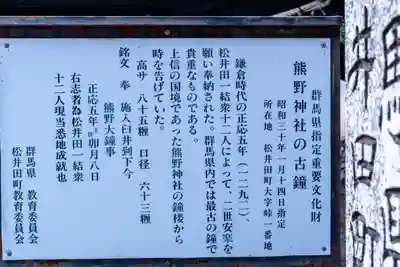 群馬県指定重要文化財
熊野神社の古鐘
昭和三十年一月十四日指定
所在地 松井田町大字峠一番地
鎌倉時代の正応五年(一二九二)、
松井田一結衆十二人によって、二世安楽を
願い奉納された。群馬県内では最古の鐘で
貴重なものである。
上信の国境であった熊野神社の鐘楼から
時を告げていた。
高サ 八十五糎 口径 六十三糎
銘文 奉 施入臼井到下今
熊野大鐘事
正応五年卯月八日
右志者為松井田一結衆
十二人現当悉地成就也
群馬県 教育委員会
松井田町教育委員会